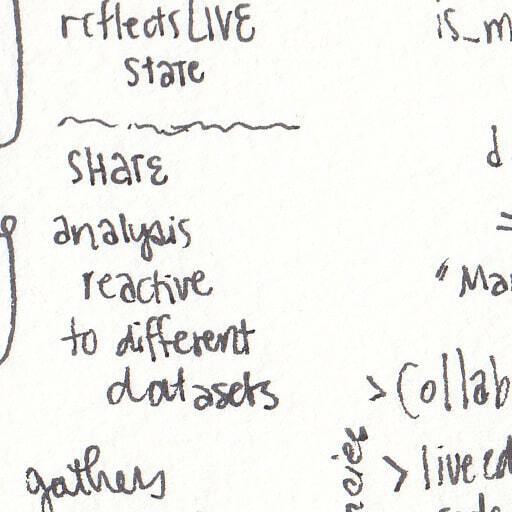 reflects LIVE
state
SHARE
analysis
reactive
to different
datasets
gathers
is_m
d
"Ma
> Collab
> live ed